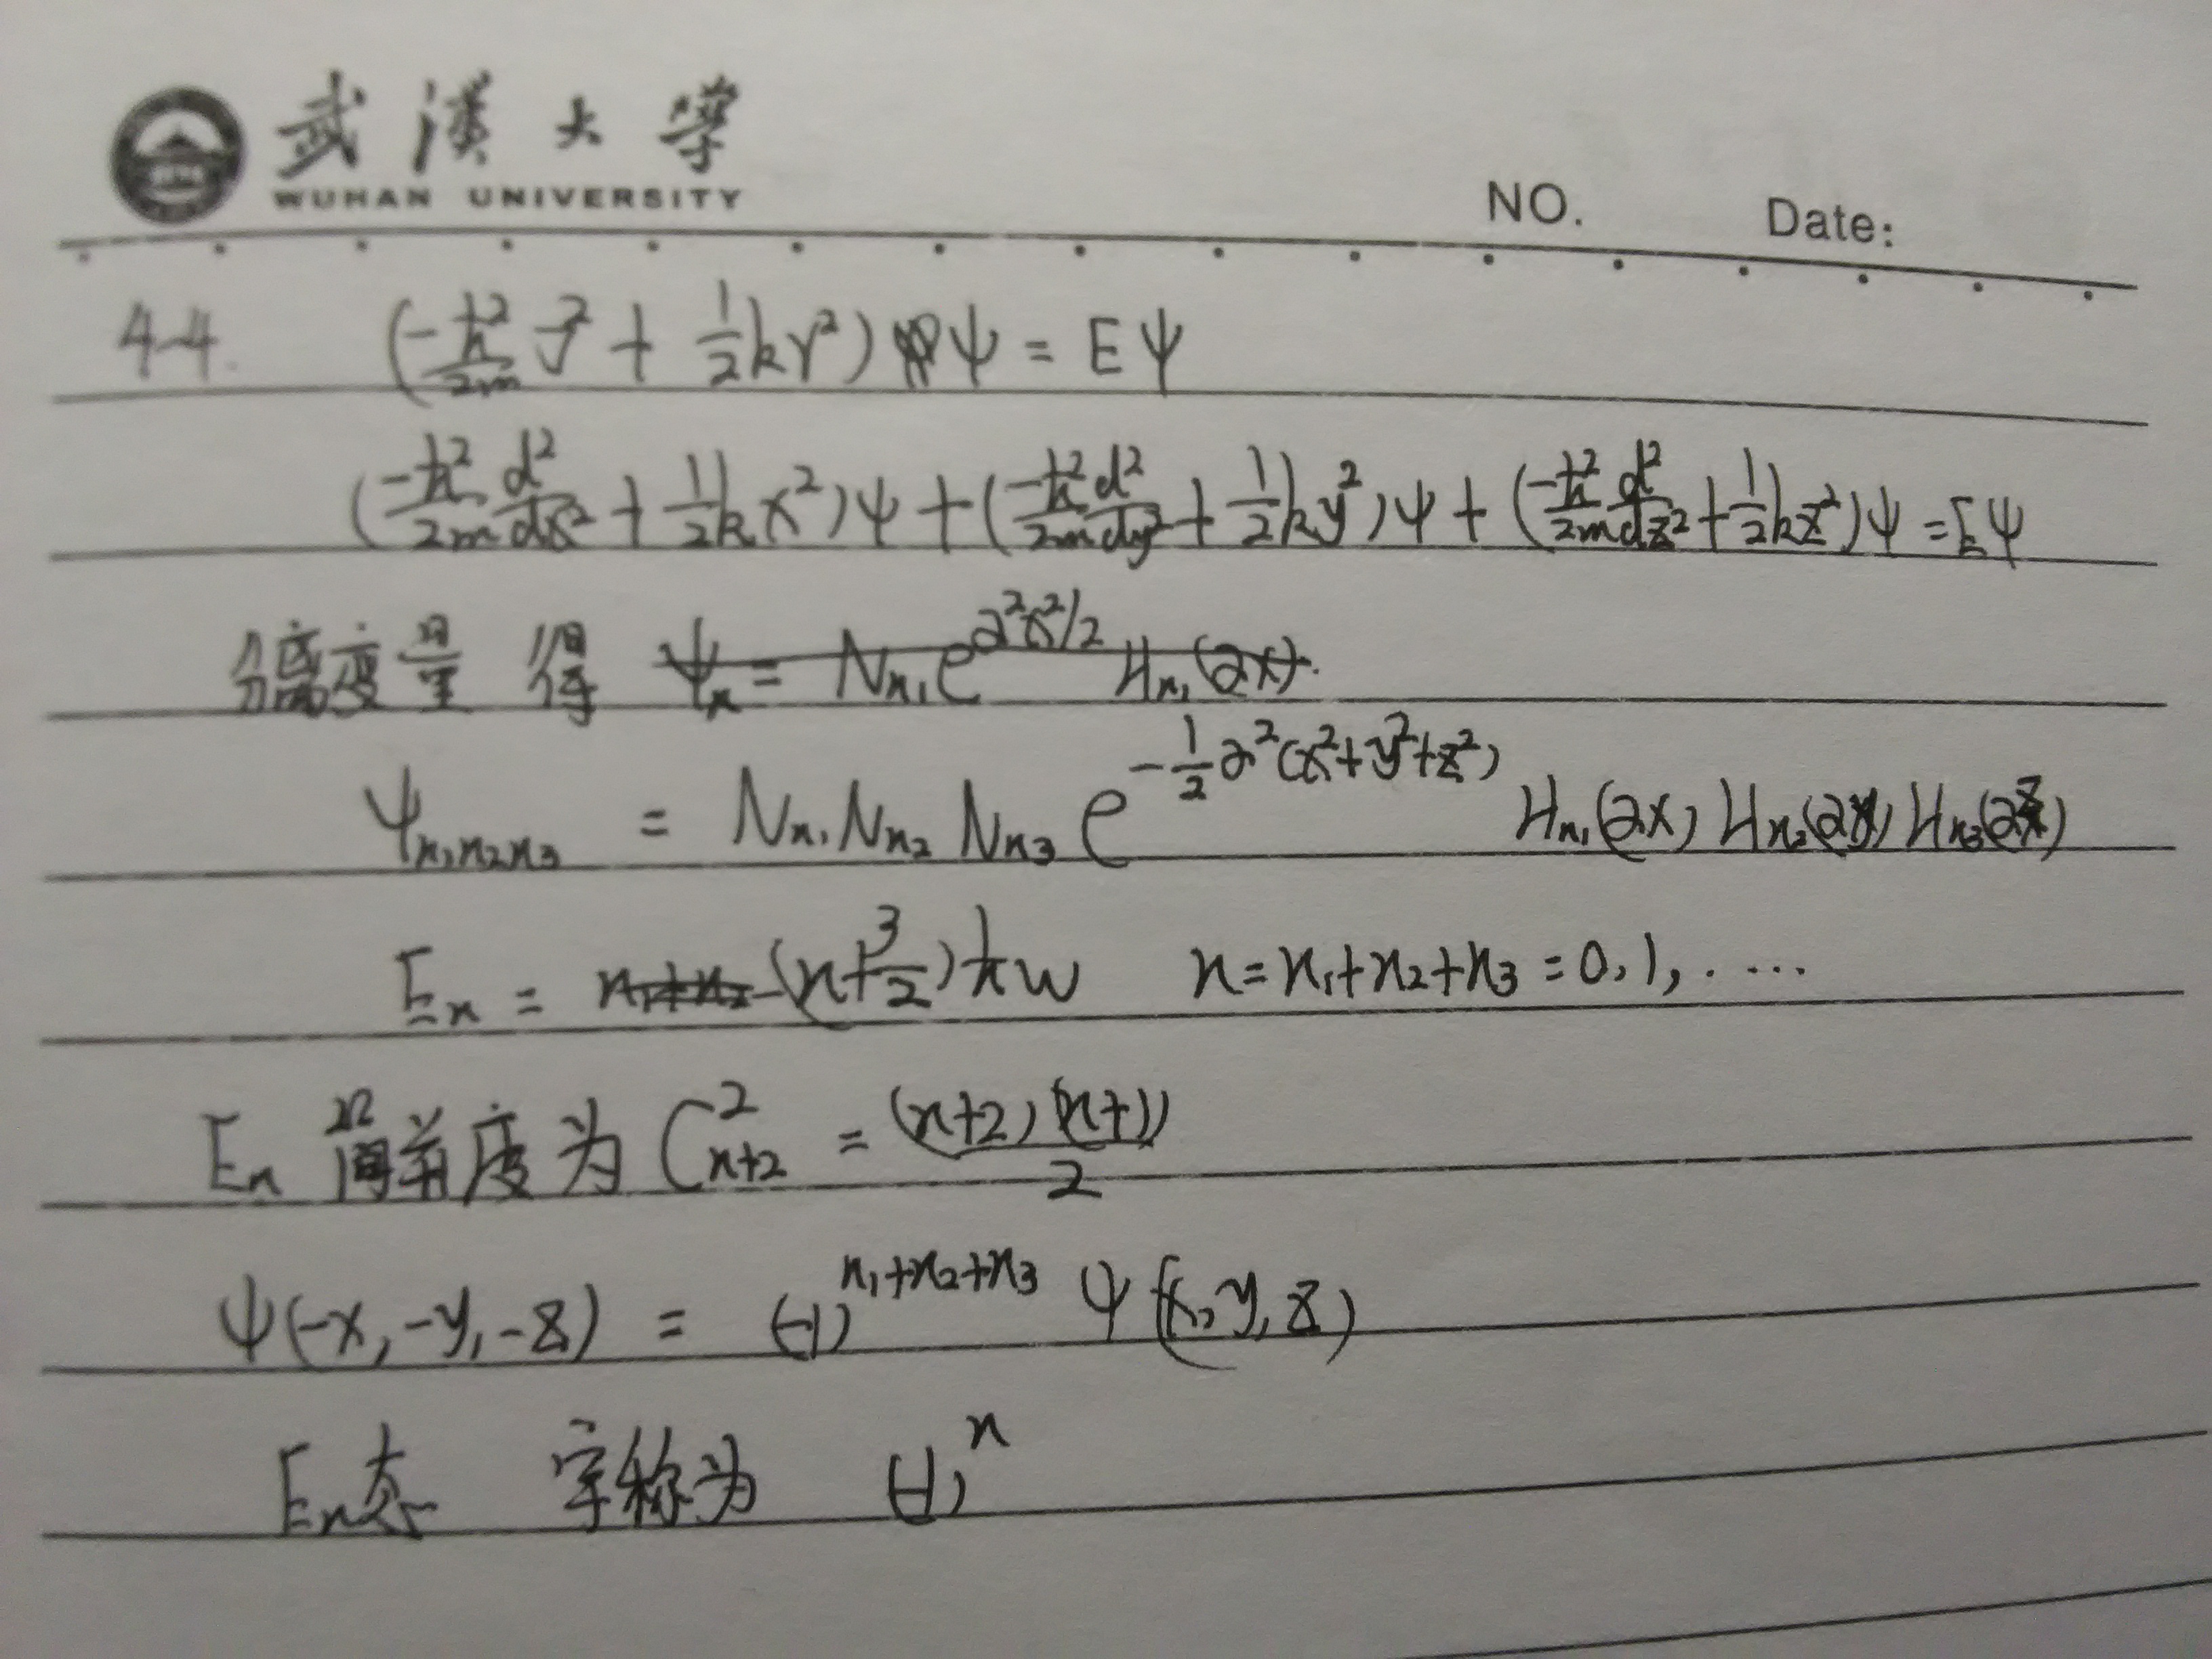 武漢大學
WUHAN UNIVERSITY
NO. Date:
4-4. (-ħ²/2m ∇² + 1/2 kr²) ψ = Eψ
(-ħ²/2m d²/dx² + 1/2 k x²)ψ + (-ħ²/2m d²/dy² + 1/2 k y²)ψ + (-ħ²/2m d²/dz² + 1/2 k z²)ψ = Eψ
分离变量 得 ψₙ = Nₙ₁ e^(α²x²/2) Hₙ₁(αx).
ψₙ₁ₙ₂ₙ₃ = Nₙ₁ Nₙ₂ Nₙ₃ e^(-1/2 α²(x²+y²+z²)) Hₙ₁(αx) Hₙ₂(αy) Hₙ₃(αz)
Eₙ = n₁+n₂ (n+3/2)ħw n=n₁+n₂+n₃=0,1,....
Eₙ 简并度为 C²ₙ₊₂ = (n+2)(n+1)/2
ψ(-x,-y,-z) = (-1)^(n₁+n₂+n₃) ψ(x,y,z)
Eₙ态 宇称为 (-1)ⁿ